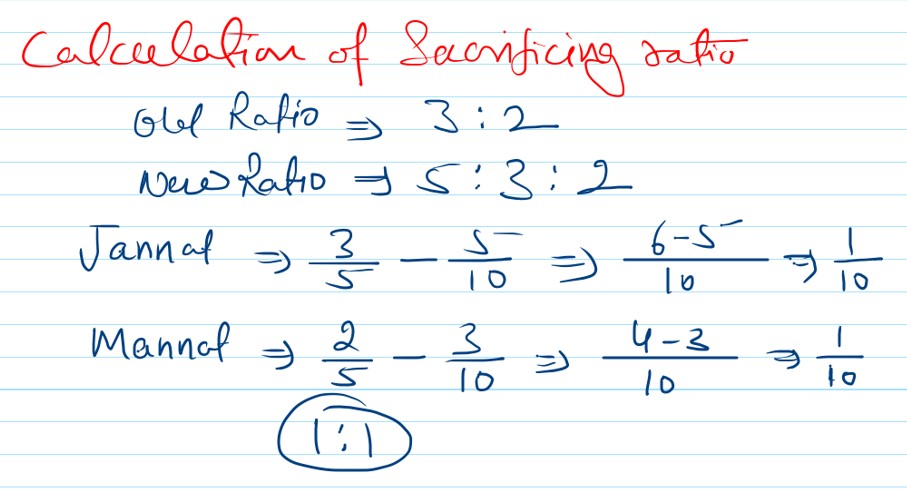 Calculation of Sacrificing ratio
Old Ratio ⇒ 3 : 2
New Ratio ⇒ 5 : 3 : 2
Jannat ⇒ 3/5 − 5/10 ⇒ 6-5/10 ⇒ 1/10
Mannat ⇒ 2/5 − 3/10 ⇒ 4-3/10 ⇒ 1/10
1 : 1